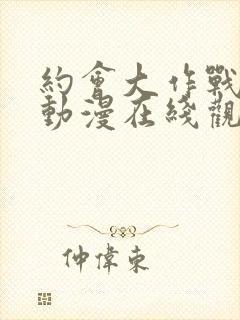 約會大作戰
動漫在綫觀
仲偉東